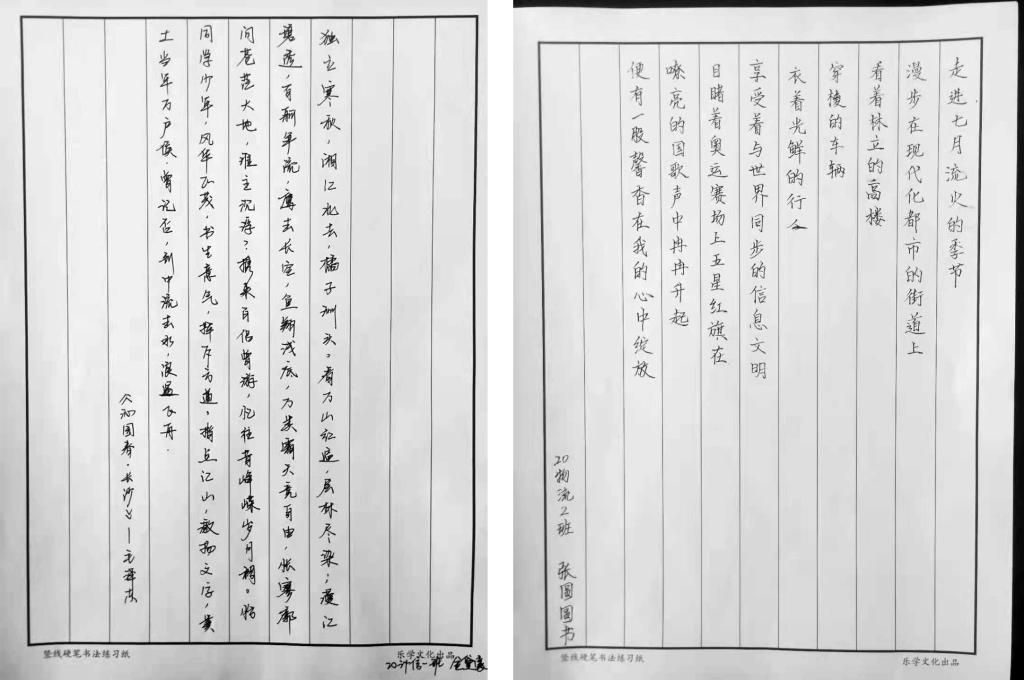 独立寒秋，湘江北去，橘子洲头。看万山红遍，层林尽染；漫江
碧透，百舸争流，鹰击长空，鱼翔浅底，万类霜天竞自由，怅寥廓
问苍茫大地，谁主沉浮？携来百侣曾游，忆往昔峥嵘岁月稠。恰
同学少年，风华正茂，书生意气，挥斥方遒，指点江山，激扬文字，粪
土当年万户侯，曾记否，到中流击水，浪遏飞舟．
《沁园春·长沙》—毛泽东
竖线硬笔书法练习纸
乐学文化出品
20计信一班
走进七月流火的季节
漫步在现代化都市的街道上
看着林立的高楼
穿梭的车辆
衣着光鲜的行人
享受着与世界同步的信息文明
目睹着奥运赛场上五星红旗在
嘹亮的国歌声中冉冉升起
便有一股馨香在我的心中绽放
20物流2班 张圆圆书
竖线硬笔书法练习纸
乐学文化出品